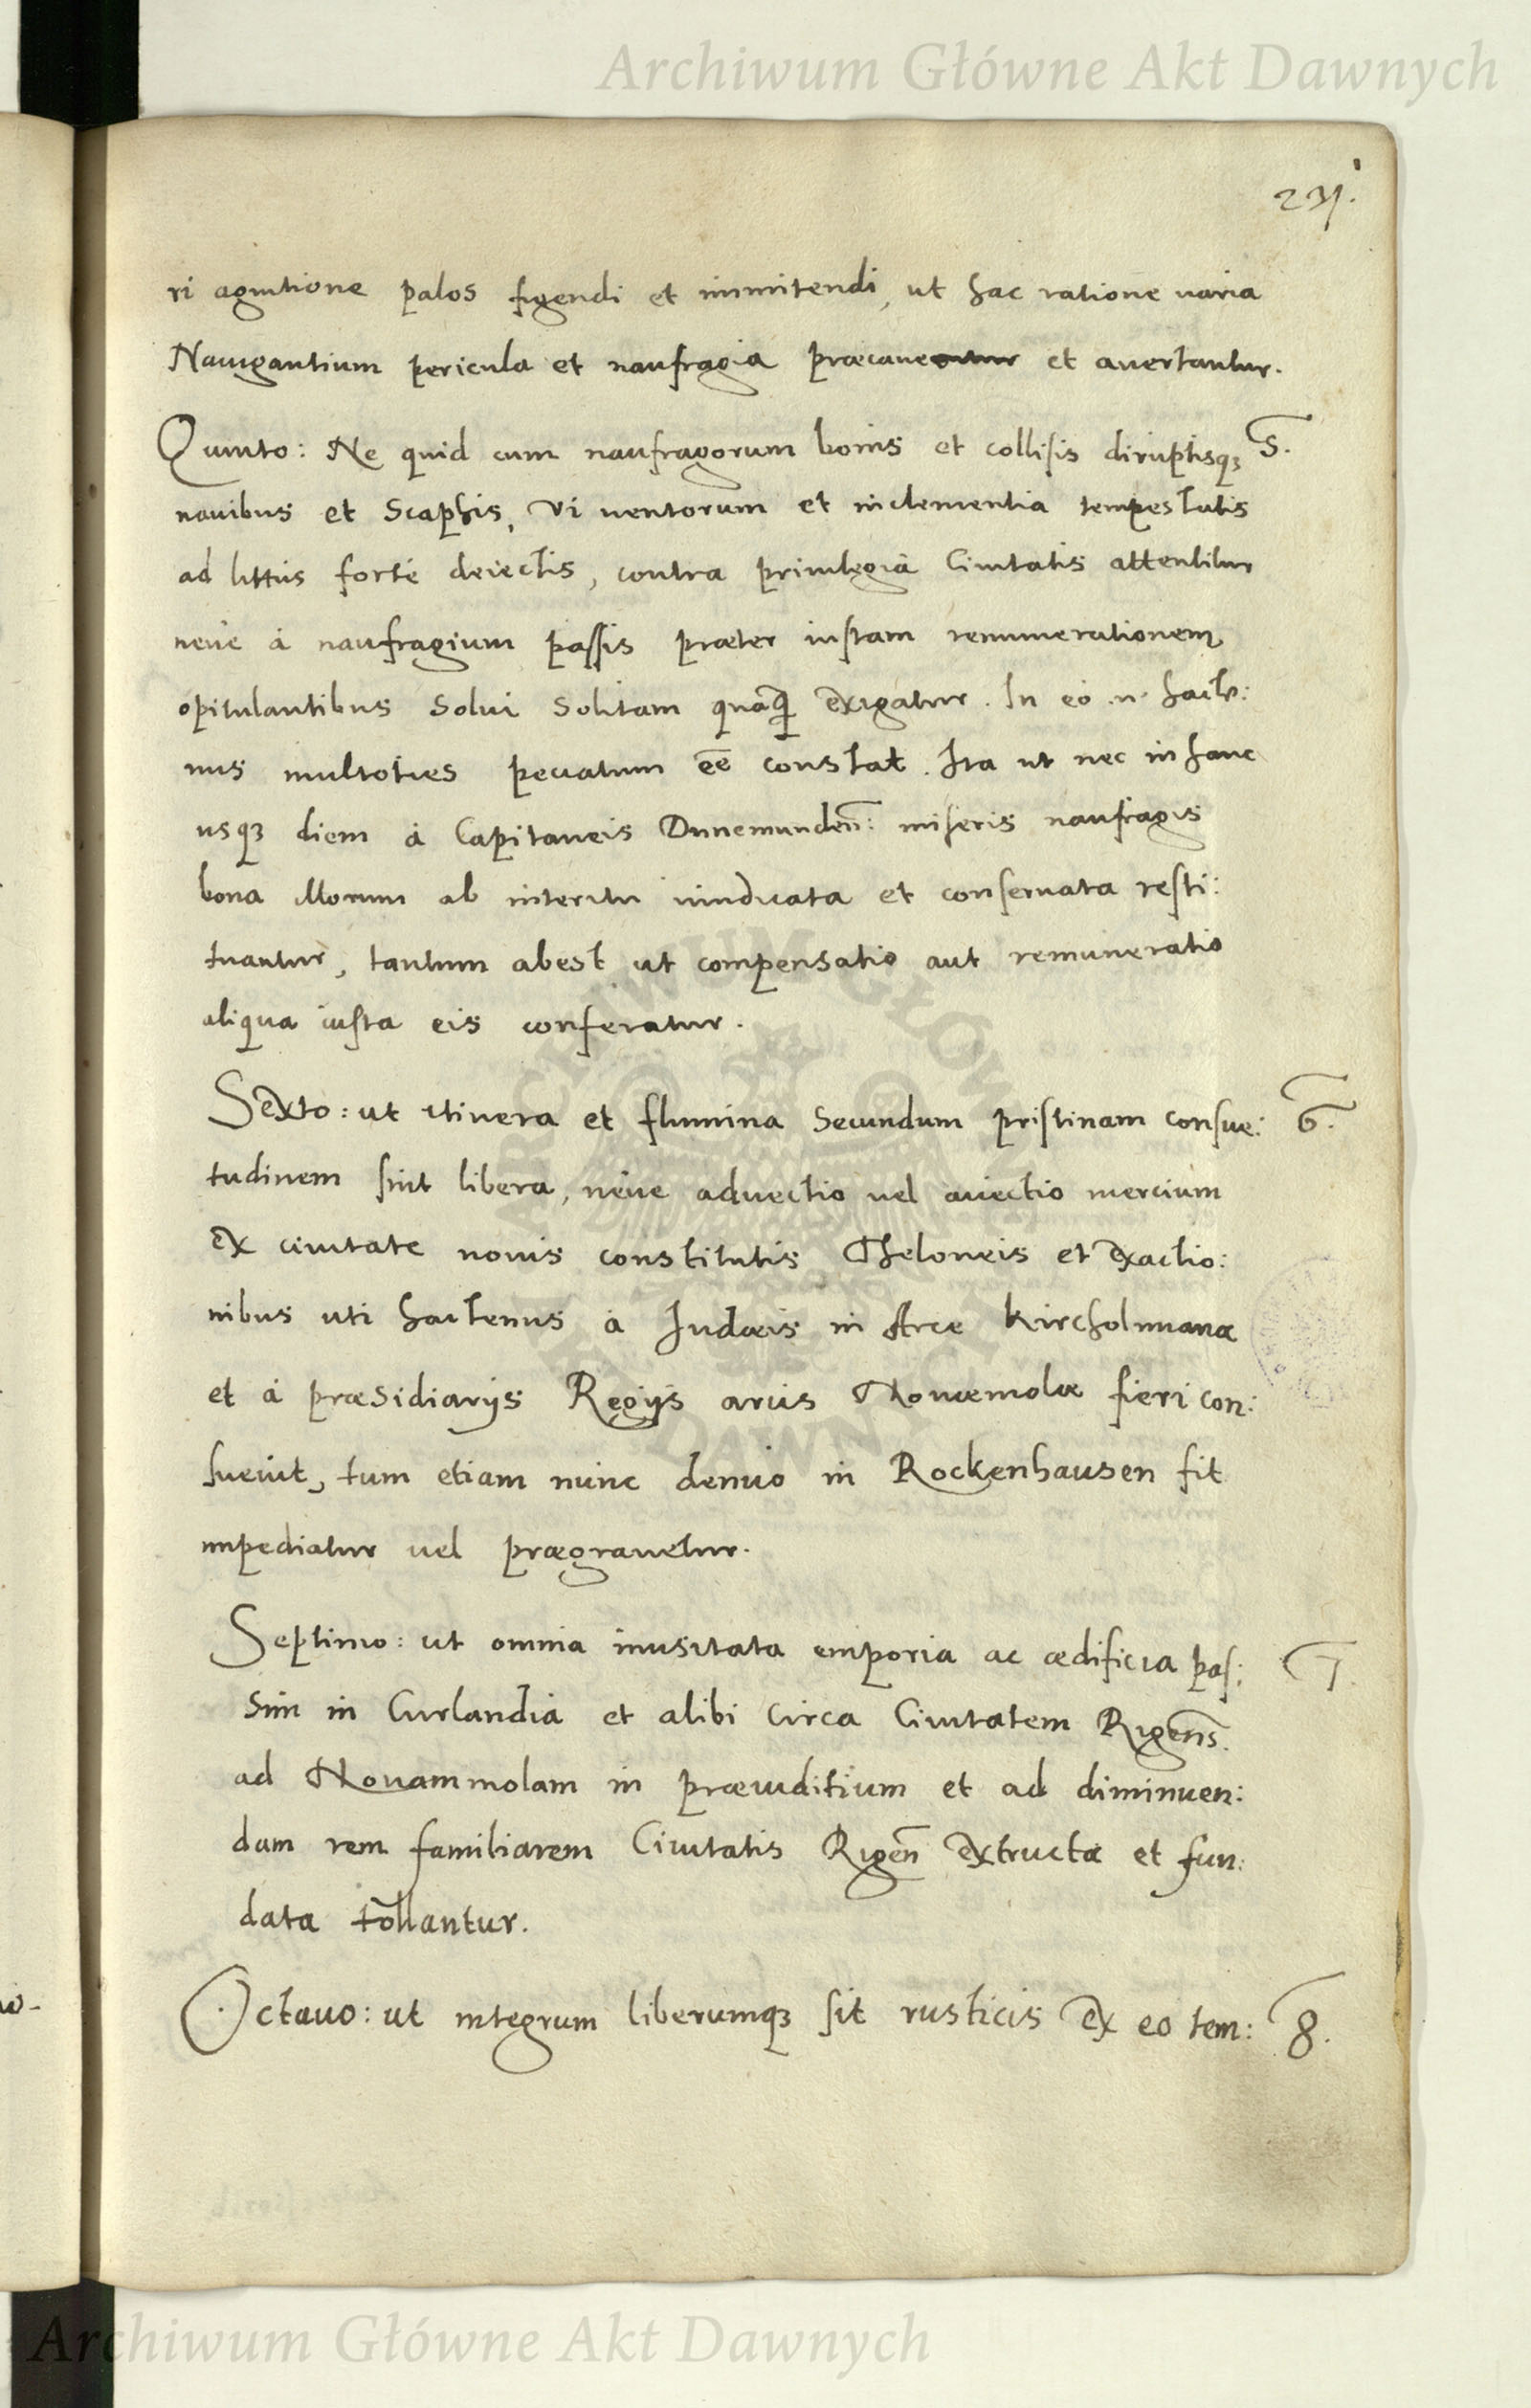 Archiwum Główne Akt Dawnych
231.
ri agnitione palos figendi et inmitendi, ut hac ratione uaria
Nauigantium pericula et naufragia præcaueantur et auertantur.
Quinto: Ne quid cum naufragorum bonis et collisis diruptisqꝫ 5.
nauibus et Scaphis, vi uentorum et inclementia tempestatis
ad littus forté deiectis, contra priuilegia Ciuitatis attentetur
neue á naufragium passis præter iustam remunerationem
opitulantibus Solui Solitam quaqꝫ exigatur. In eo .n. hacte:
nus multoties peccatum eē constat. Ita ut nec in hanc
usqꝫ diem á Capitaneis Dunemunden̄: miseris naufragis
bona illorum ab interitu uindicata et conseruata resti:
tuantur, tantum abest ut compensatio aut remuneratio
aliqua iusta eis conferatur.
Sexto: ut itinera et flumina Secundum pristinam consue: 6.
tudinem sint libera, néue aduectio uel auectio mercium
ex ciuitate nouis constitutis Theloneis et exactio:
nibus uti hactenus á Iudæis in Arce Kircholmana
et á præsidiarijs Regijs arcis Nouæmolæ fieri con:
sueuit, tum etiam nunc denuo in Rockenhausen fit
impediatur uel prægrauetur.
Septimo: ut omnia inusitata emporia ac ædificia pas: 7.
sim in Curlandia et alibi circa Ciuitatem Rigens̄.
ad Nouammolam in præiuditium et ad diminuen:
dam rem familiarem Ciuitatis Rigen̄ extructa et fun:
data tollantur.
Octauo: ut integrum liberumqꝫ sit rusticis ex eo tem: 8.
Archiwum Główne Akt Dawnych